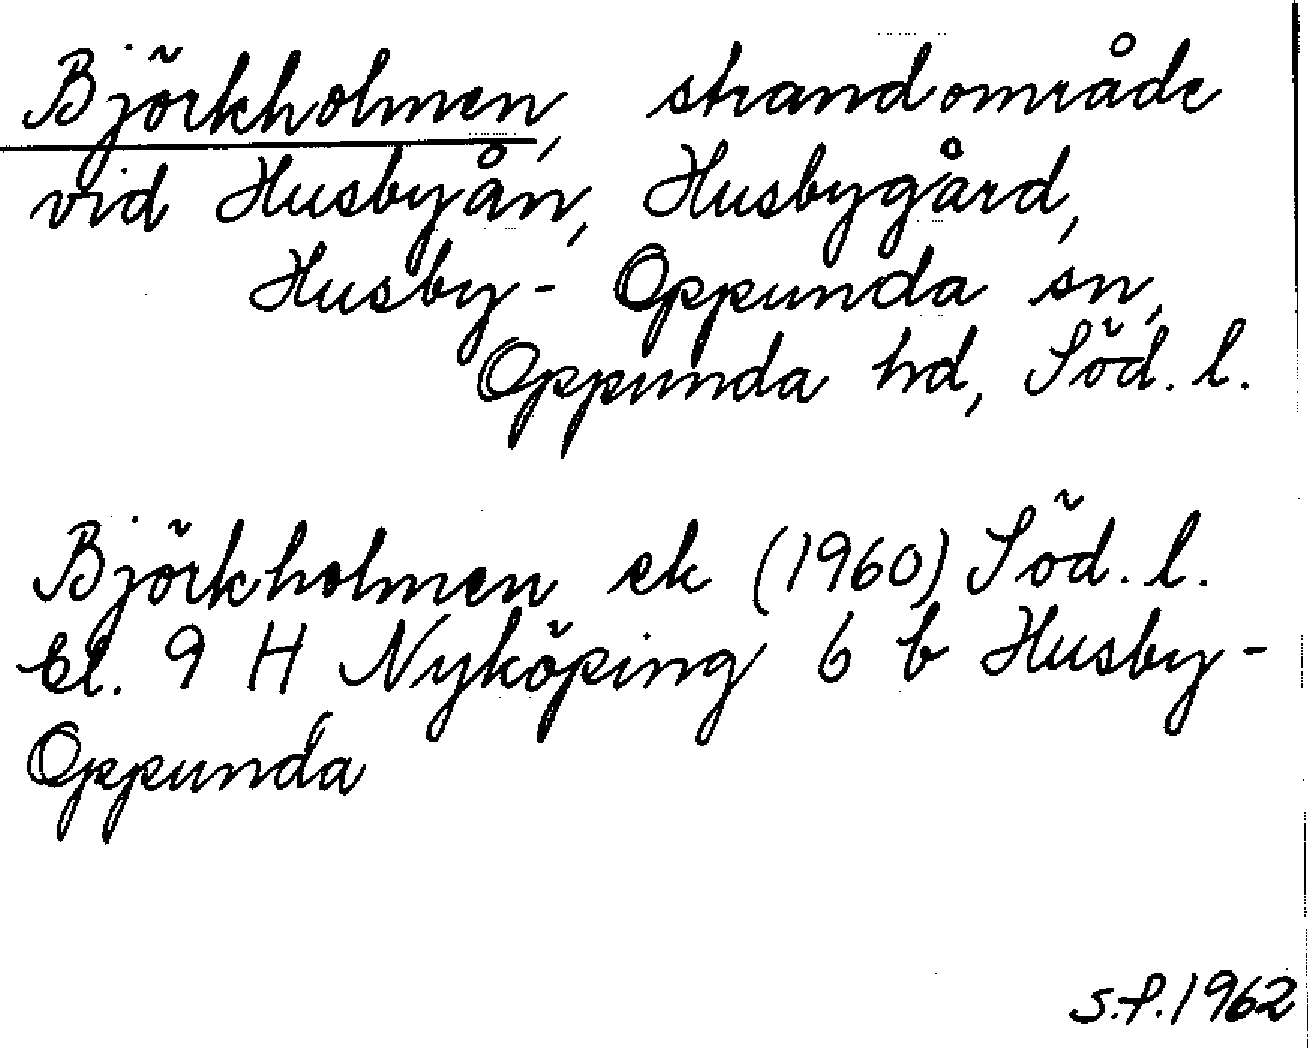 Björkholmen, strandområde
vid Husbyån, Husbygård,
Husby- Oppunda sn,
Oppunda hd, Söd. l.
Björkholmen ek (1960) Söd. l.
bl. 9 H Nyköping 6 b Husby-
Oppunda
S.P. 1962